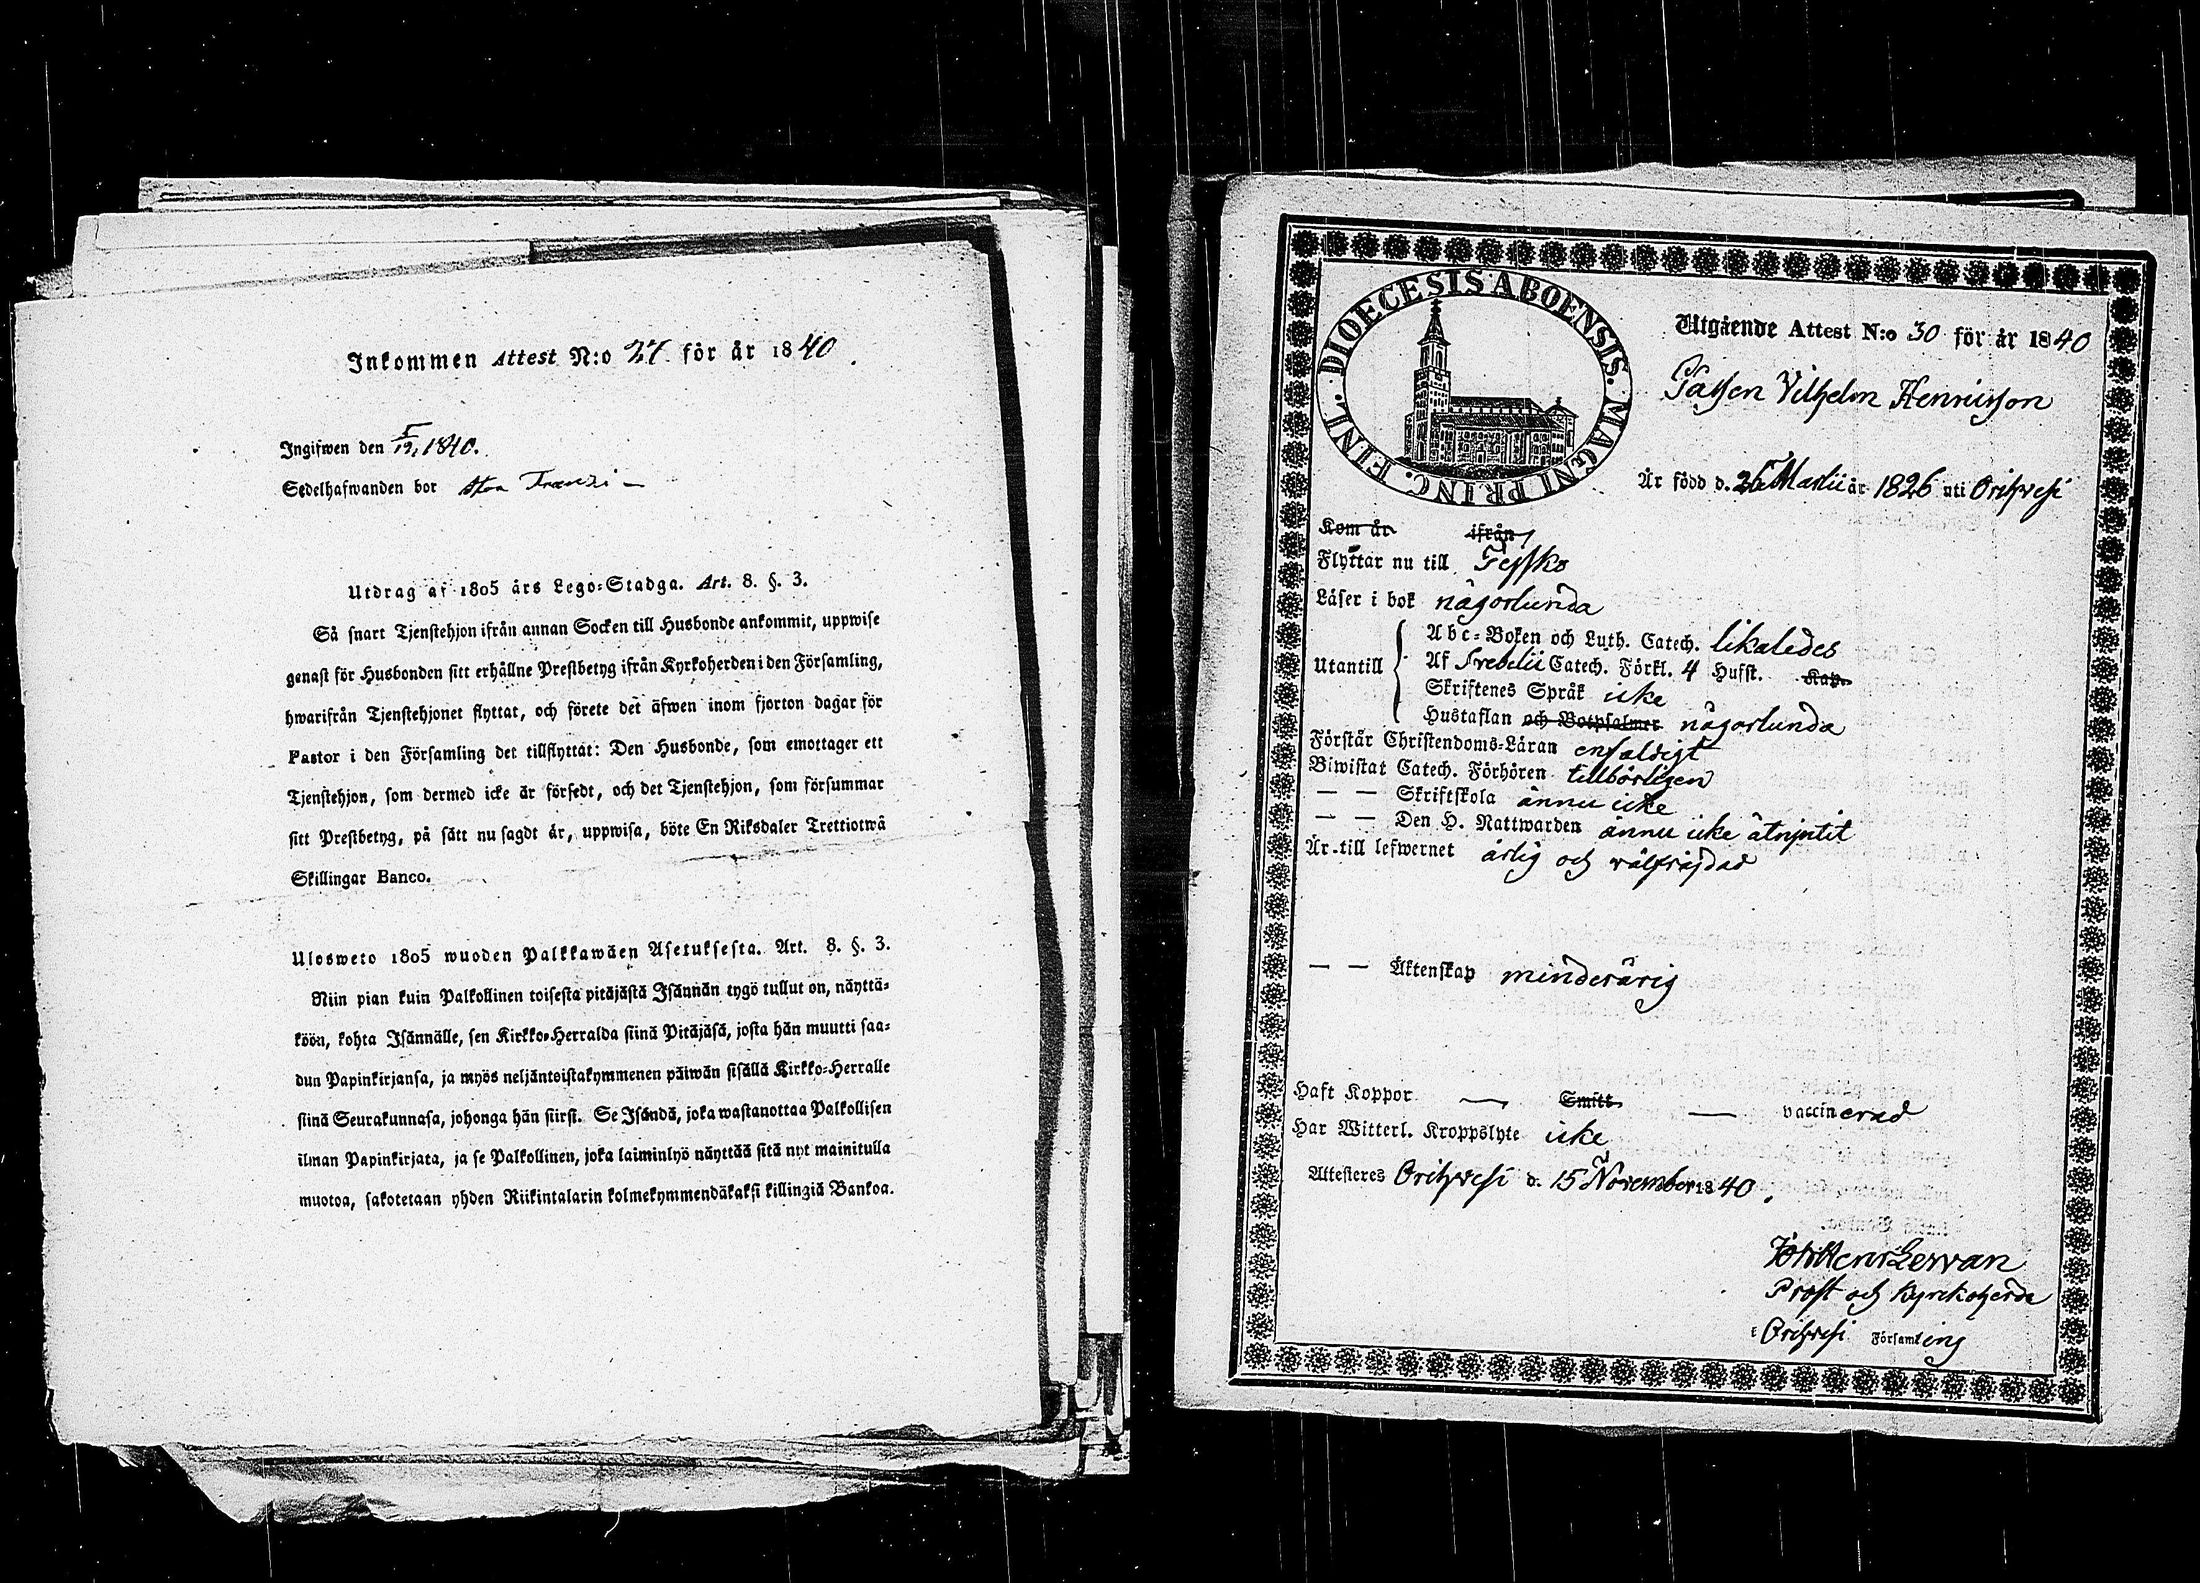 Inkommen Attest N:o 27. för år 1840.
Ingifwen den 5/12 1840.
Sedelhafwanden bor
Utdrag af 1805 års Lego-Stadga. Art. 8. §. 3.
Så snart Tjenstehjon ifrån annan Socken till Husbonde ankommit, uppwise
genast för Husbonden sitt erhållne Prestbetyg ifrån Kyrkoherden i den Församling,
hwarifrån Tjenstehjonet flyttat, och förete det äfwen inom fjorton dagar för
Pastor i den Församling det tillflyttat: Den Husbonde, som emottager ett
Tjenstehjon, som dermed icke är försedt, och det Tjenstehjon, som försummar
sitt Prestbetyg, på sätt nu sagdt är, uppwisa, böte En Riksdaler Trettiotwå
Skillingar Banco.
Ulosweto 1805 wuoden Palkkawäen Asetuksesta. Art. 8. §. 3.
Niin pian kuin Palkollinen toisesta pitäjästä Isännän tygö tullut on, näyttä-
köön, kohta Isännälle, sen Kirkko-Herralda siinä Pitäjäsä, josta hän muutti saa-
dun Papinkirjansa, ja myös neljäntoistakymmenen päiwän sisällä Kirkko-Herralle
siinä Seurakunnasa, johonga hän siirsi. Se Isändä, joka wastanottaa Palkollisen
ilman Papinkirjata, ja se Palkollinen, joka laiminlyö näyttää sitä nyt mainitulla
muotoa, sakotetaan yhden Riikintalarin kolmekymmendäkaksi killingiä Bankoa.
DIOECESIS ABOENSIS. MAGNI PRINC. FINL.
Utgående Attest N:o 30 för år 1840
Gåssen Vilhelm Henricsson
År född d. 26 Martii år 1826 uti Orihvesi
Kom år ifrån
Flyttar nu till Teissko
Läser i bok någorlunda
Utantill
Abc-Boken och Luth. Catech. likaledes
Af Svebelii Catech. Förkl. 4 Hufst. Kap.
Skriftenes Språk icke
Hustaflan och Botpsalmer någorlunda
Förstår Christendoms-Läran enfaldigt
Biwistat Catech. Förhören tillbörligen
— — Skriftskola ännu icke
— — Den H. Nattwarden ännu icke åtnjutit
Är till lefwernet ärlig och wälfräjdad
— — Äktenskap minderårig
Haft Koppor — Smitt — vaccinerad
Har Witterl. Kroppslyte icke
Attesteres Orihvesi d. 15 November 1840.
Joh Henr Lewan
Prost och Kyrckoherde
i Orihvesi Församling